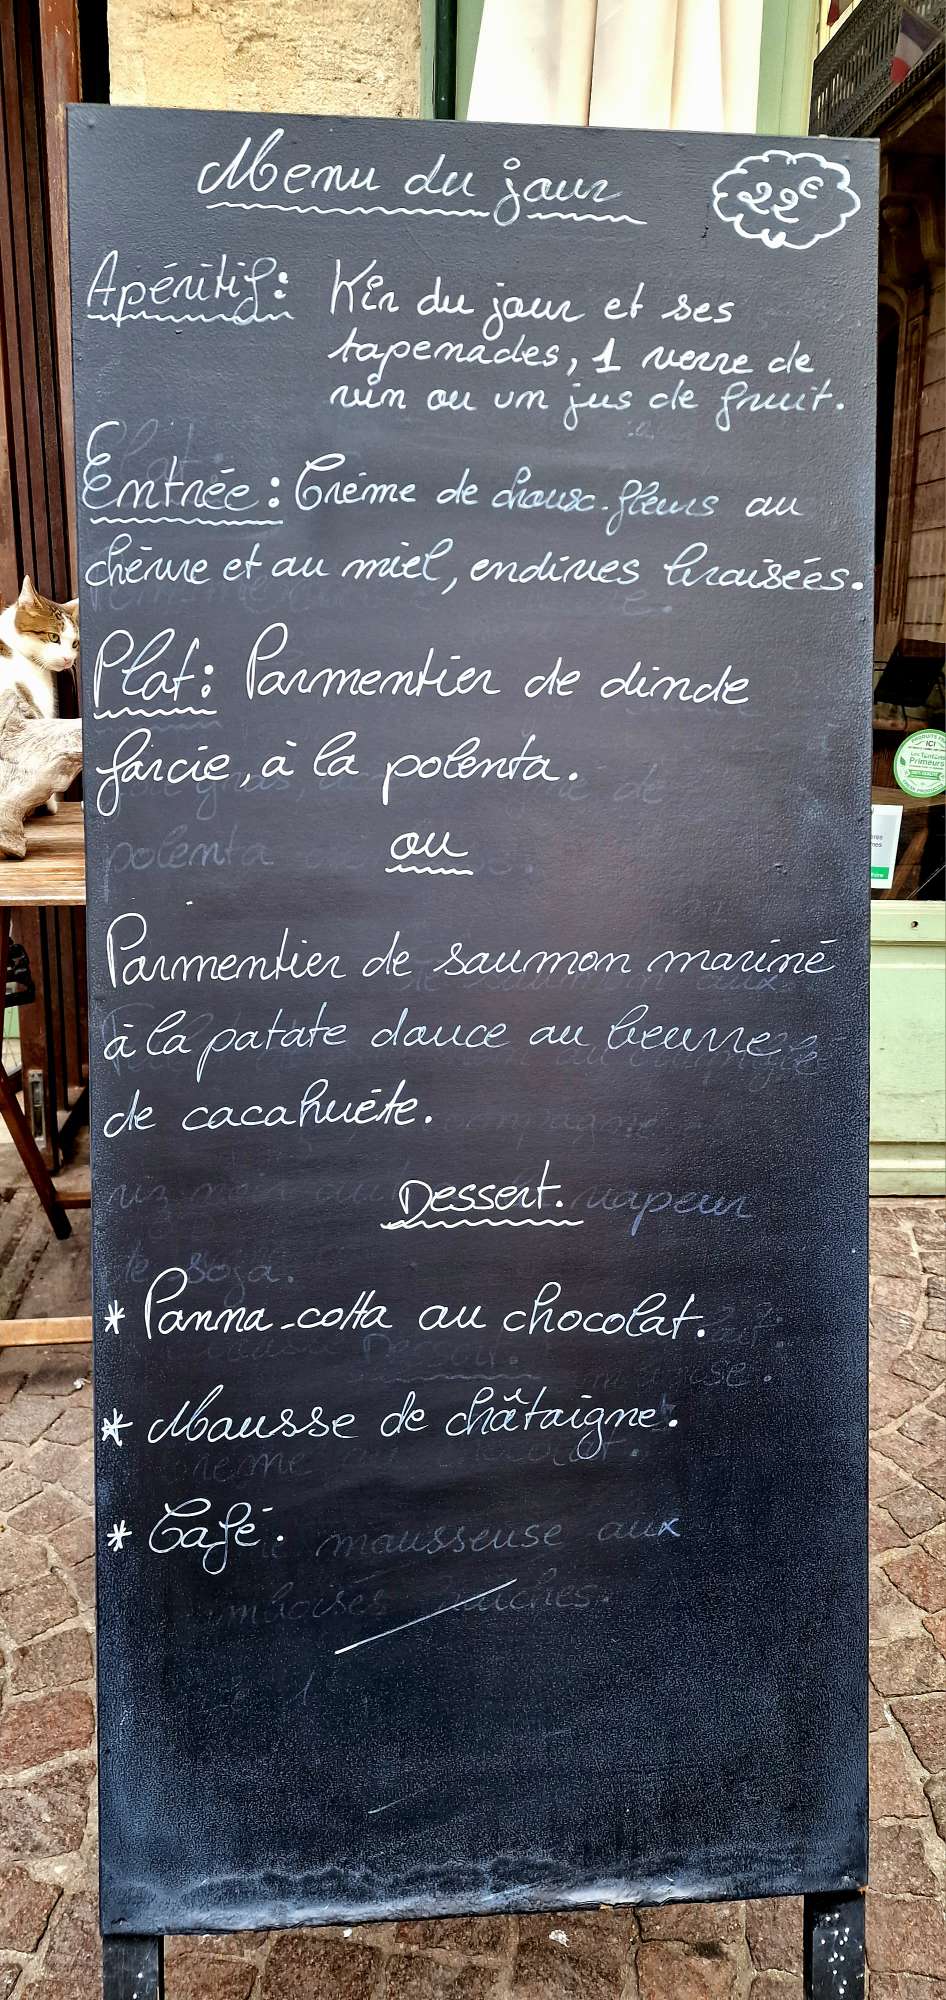 Menu du jour
22€
Apéritif: Kir du jour et ses
tapenades, 1 verre de
vin ou un jus de fruit.
Entrée: Crème de choux-fleurs au
chèvre et au miel, endives braisées.
Plat: Parmentier de dinde
farcie, à la polenta.
ou
Parmentier de saumon mariné
à la patate douce au beurre
de cacahuète.
Dessert.
* Panna-cotta au chocolat.
* Mousse de châtaigne.
* Café.
ICI
Primeurs